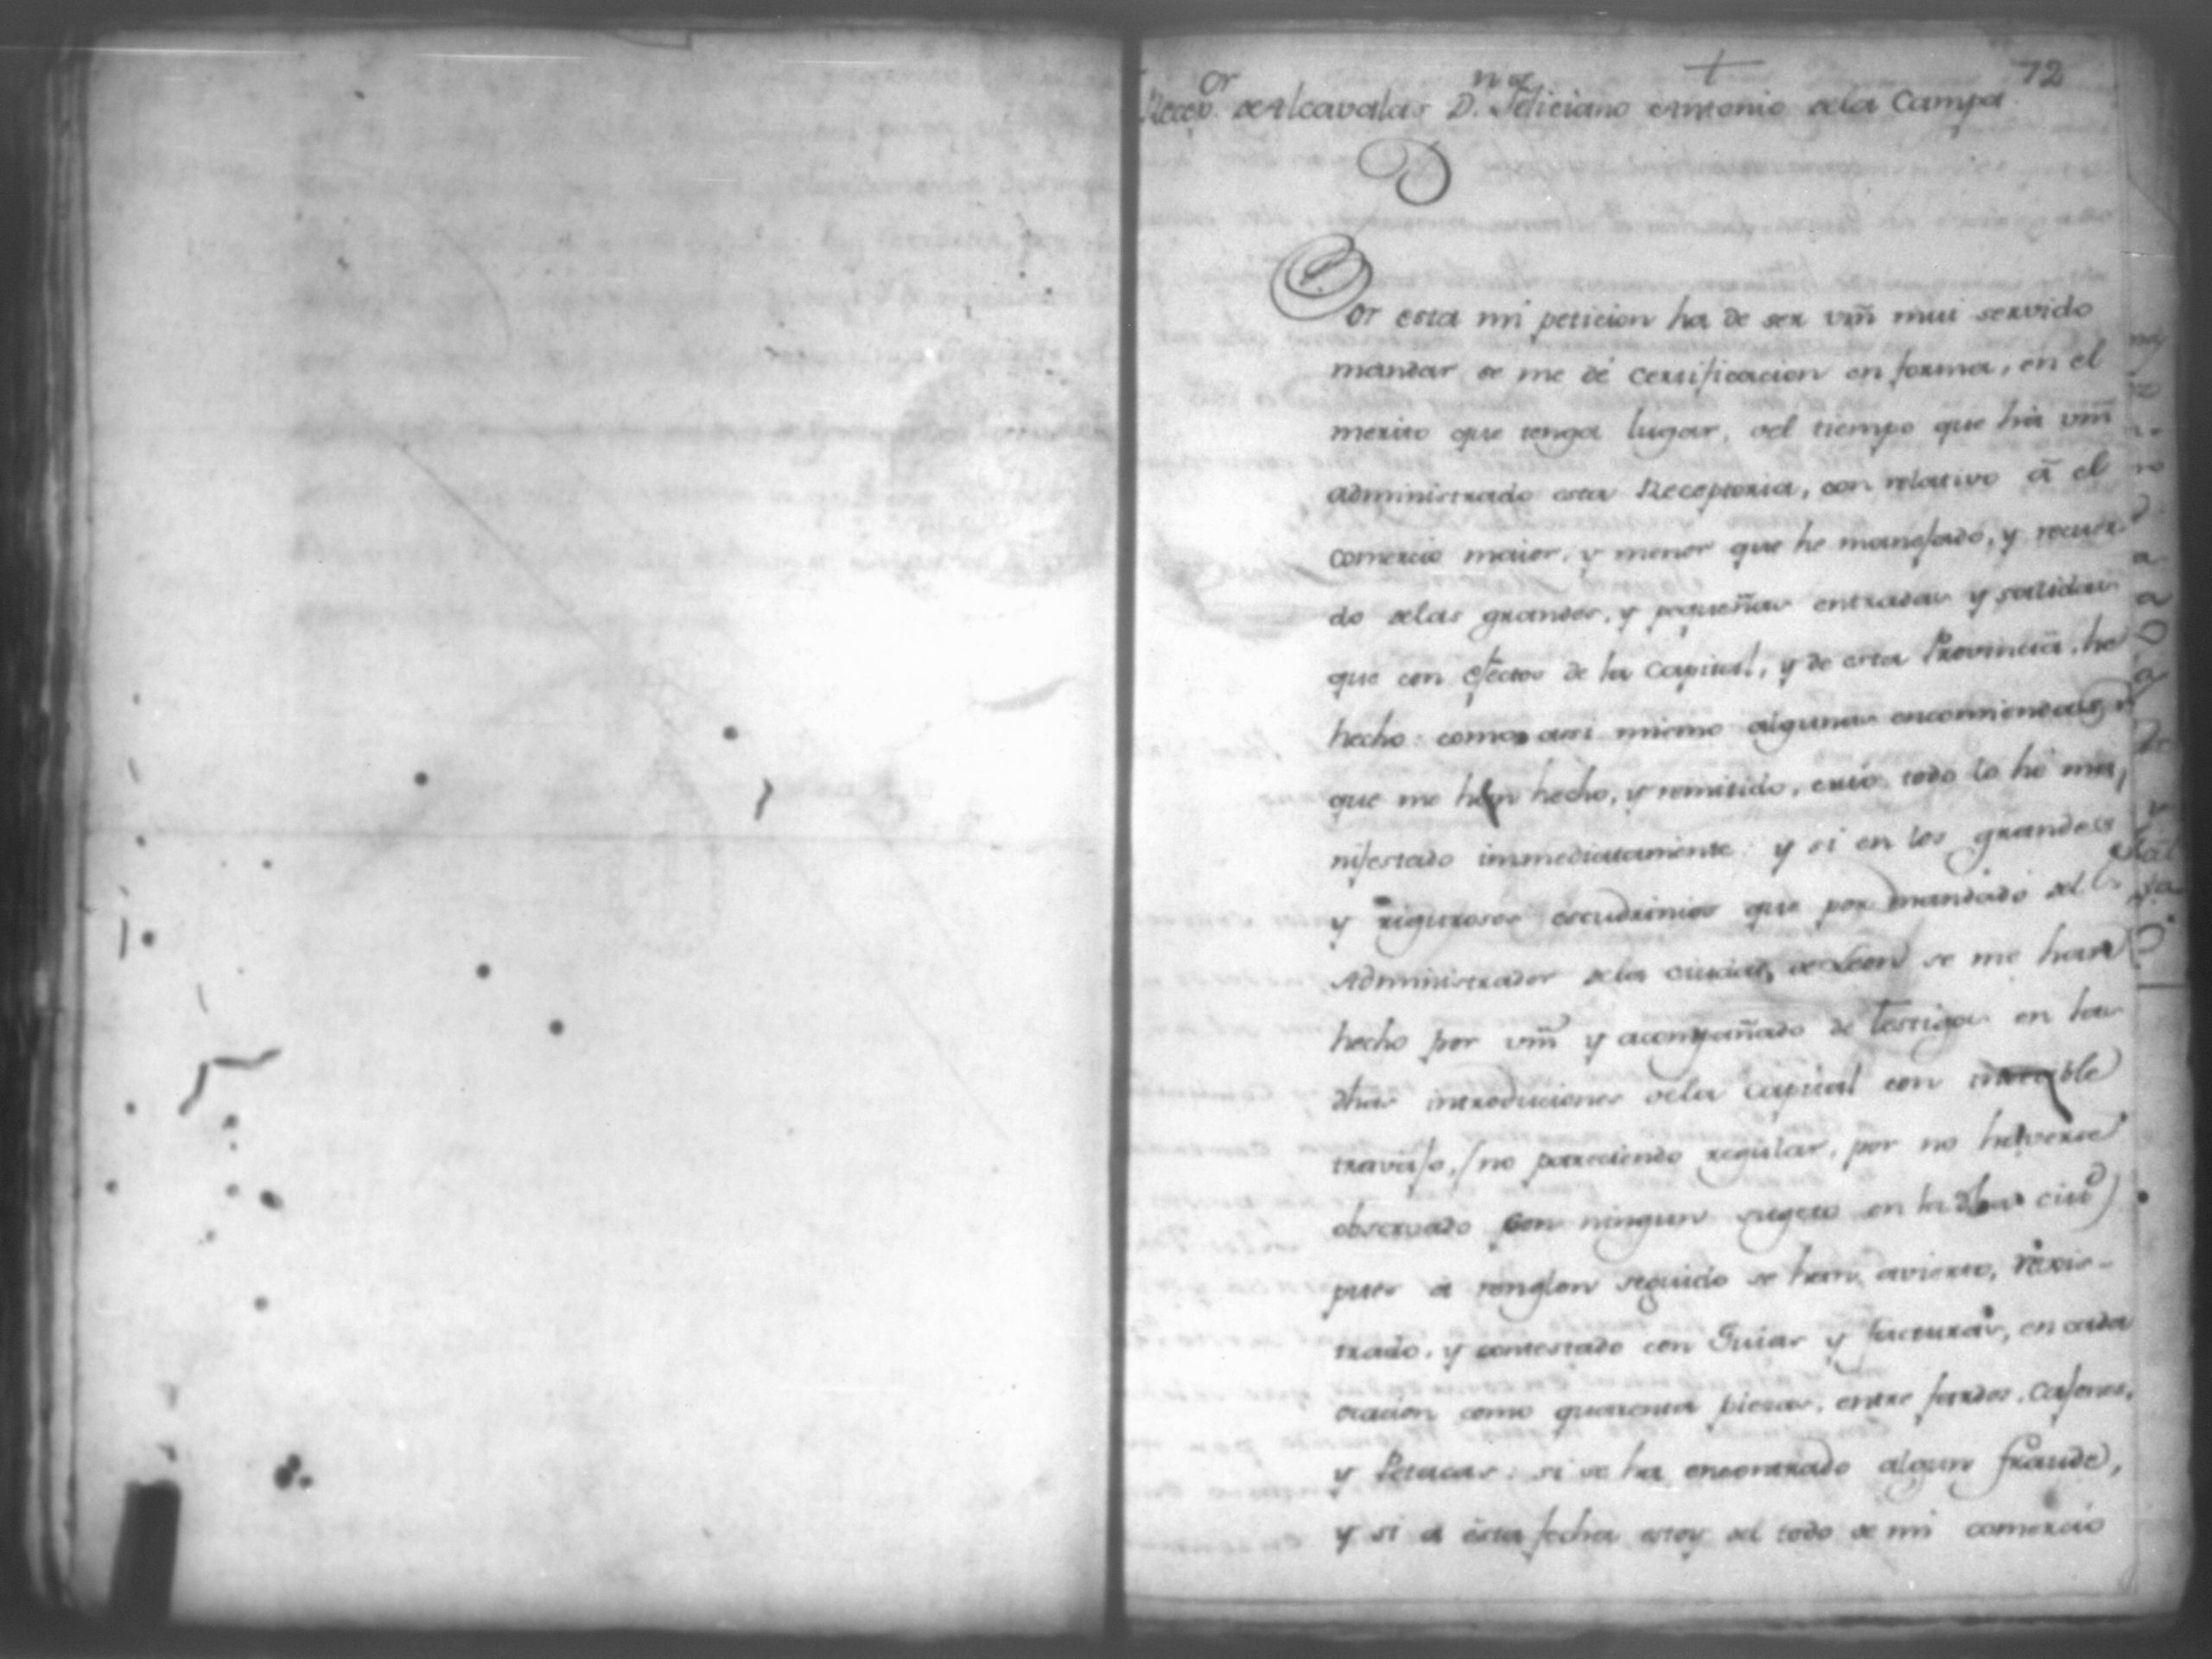 72
Recep.or de Alcavalas D.n Feliciano Antonio de la Campa
Por esta mi peticion ha de ser vm̃ mui servido
mandar se me dé certificacion en forma, en el
merito que tenga lugar, del tiempo que há vm̃
administrado esta Receptoria, con relativo â el
comercio maior, y menor que he manejado, y recuer-
do delas grandes, y pequeñas entradas y salidas
que con efectos de la Capital, y de esta Provincia, he
hecho: como assi mismo algunas encomiendas
que me han hecho, y remitido, cuio todo lo hé ma,
nifestado immediatamente: y si en los grandess
y rigurosos escudrinios que por mandado del
Administrador dela ciudad, de Leon se me han
hecho por vm̃ y acompañado de Testigos en las
dhas introduciones dela Capital con increible
travajo, (no pareciendo regular, por no haverse
observado con ningun sugeto en la dha ciud)
pues á renglon seguido se han avierto, rexis-
trado, y contestado con Guias y facturas, en cada
ocacion como quarenta piezas, entre fardos, Cajones,
y Petacas: si se ha encontrado algun fraude,
y si á ésta fecha estoy del todo de mi comercio